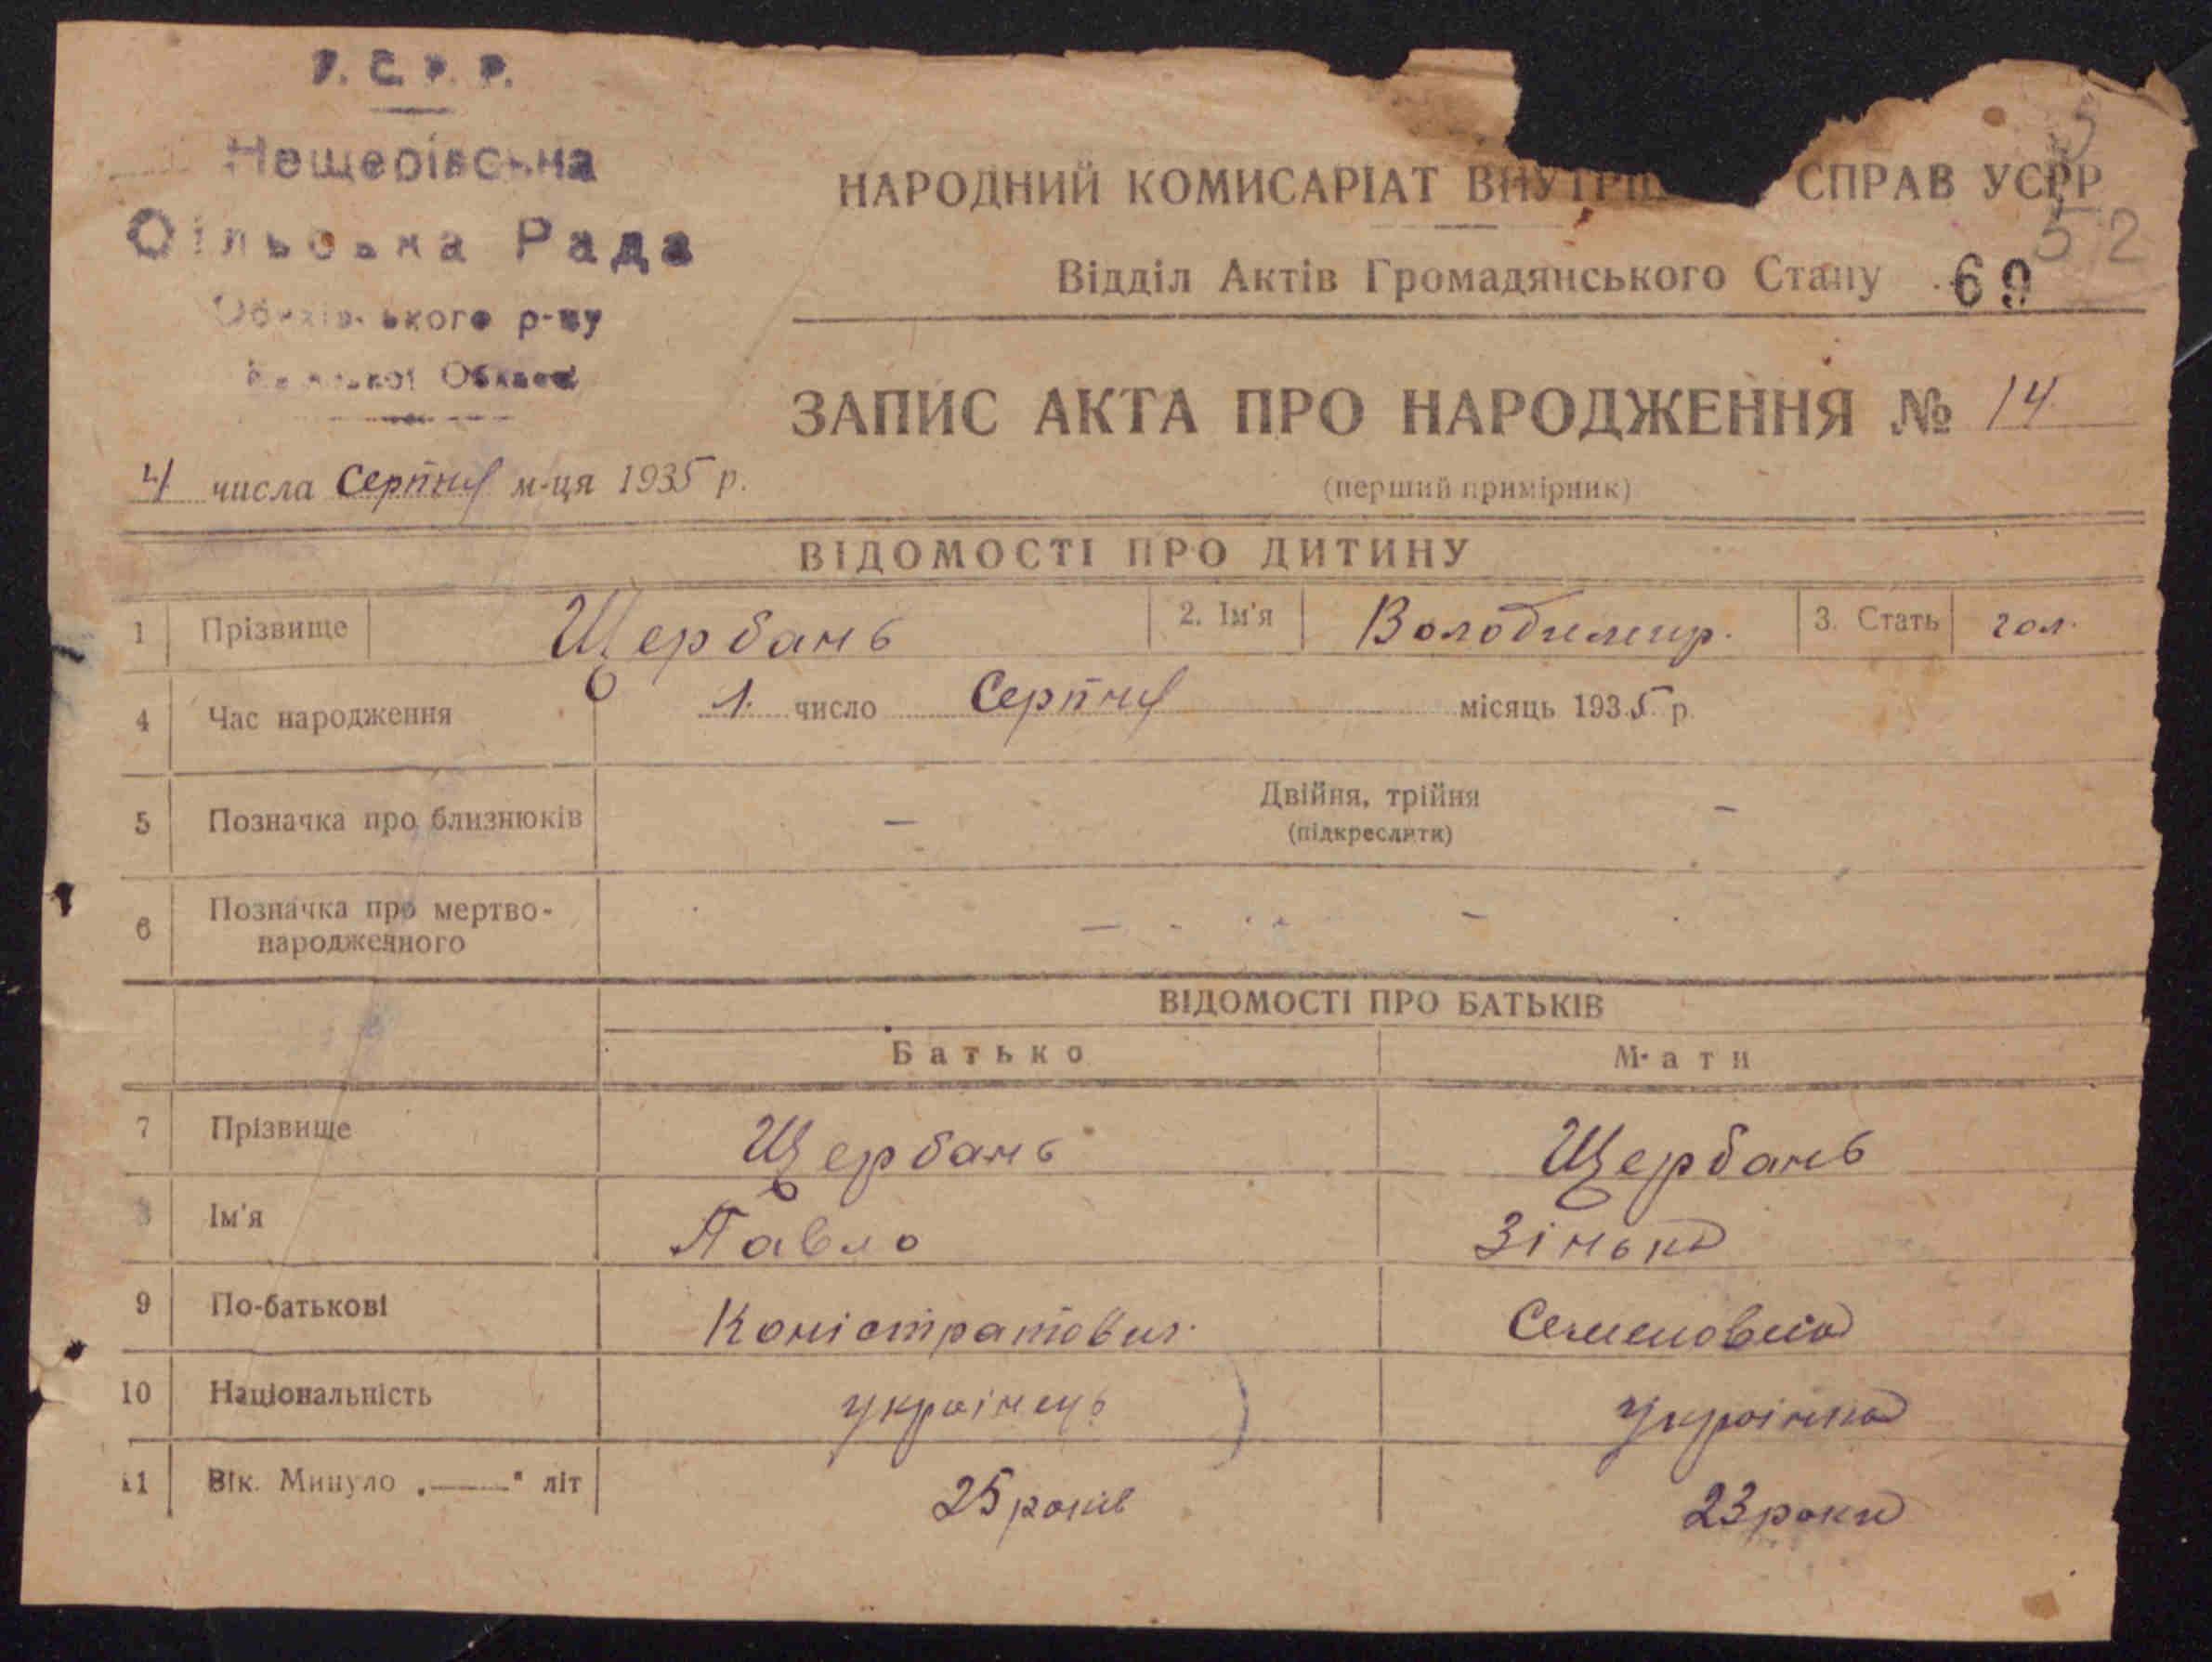 У. С. Р. Р.
Нещерівська
Сільська Рада
Обухівського р-ну
Київської Області
НАРОДНИЙ КОМИСАРІАТ ВНУТРІШ СПРАВ УСРР
52
Відділ Актів Громадянського Стану 69
ЗАПИС АКТА ПРО НАРОДЖЕННЯ № 14
4 числа Серпня м-ця 1935 р.
(перший примірник)
ВІДОМОСТІ ПРО ДИТИНУ
1 Прізвище Щербань 2. Ім'я Володимир. 3. Стать чол.
4 Час народження 1. число Серпня місяць 1935 р.
5 Позначка про близнюків — Двійня, трійня —
(підкреслити)
6 Позначка про мертво-
народженного
ВІДОМОСТІ ПРО БАТЬКІВ
Батько Мати
7 Прізвище Щербань Щербань
8 Ім'я Павло Зінька
9 По-батькові Коністратович. Семеновна
10 Національність українець українка
11 Вік. Минуло „——" літ 25 років 23 роки